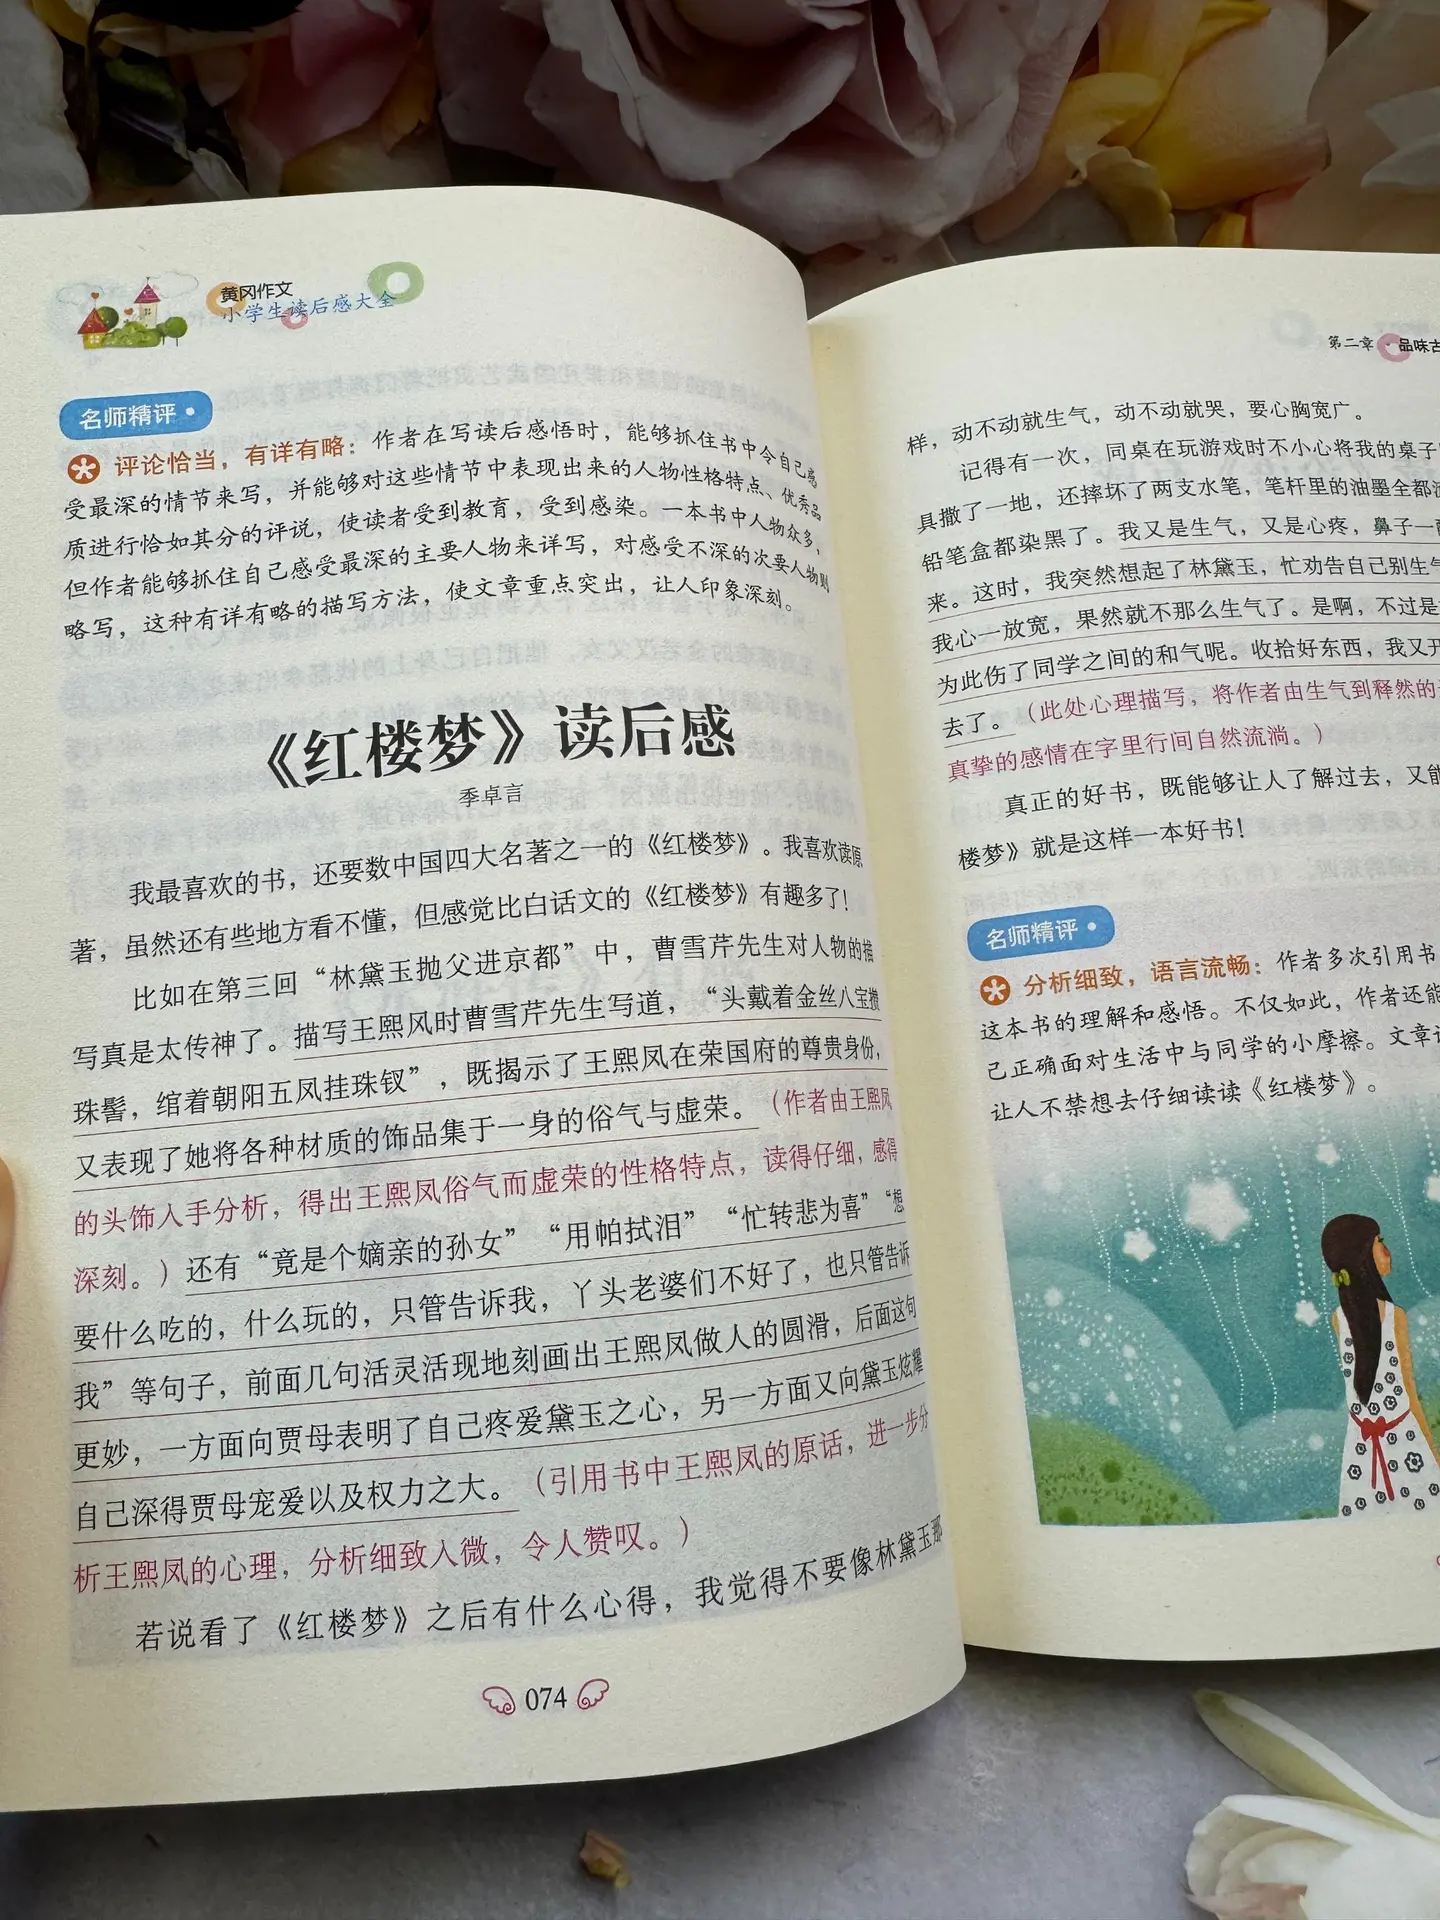 黄冈作文
小学生读后感大全
名师精评
评论恰当，有详有略：作者在写读后感悟时，能够抓住书中令自己感
受最深的情节来写，并能够对这些情节中表现出来的人物性格特点、优秀品
质进行恰如其分的评说，使读者受到教育，受到感染。一本书中人物众多，
但作者能够抓住自己感受最深的主要人物来详写，对感受不深的次要人物则
略写，这种有详有略的描写方法，使文章重点突出，让人印象深刻。
《红楼梦》读后感
季卓言
我最喜欢的书，还要数中国四大名著之一的《红楼梦》。我喜欢读原
著，虽然还有些地方看不懂，但感觉比白话文的《红楼梦》有趣多了！
比如在第三回“林黛玉抛父进京都”中，曹雪芹先生对人物的描
写真是太传神了。描写王熙凤时曹雪芹先生写道，“头戴着金丝八宝攒
珠髻，绾着朝阳五凤挂珠钗”，既揭示了王熙凤在荣国府的尊贵身份，
又表现了她将各种材质的饰品集于一身的俗气与虚荣。（作者由王熙凤
的头饰入手分析，得出王熙凤俗气而虚荣的性格特点，读得仔细，感得
深刻。）还有“竟是个嫡亲的孙女”“用帕拭泪”“忙转悲为喜”“想
要什么吃的，什么玩的，只管告诉我，丫头老婆们不好了，也只管告诉
我”等句子，前面几句活灵活现地刻画出王熙凤做人的圆滑，后面这句
更妙，一方面向贾母表明了自己疼爱黛玉之心，另一方面又向黛玉炫耀
自己深得贾母宠爱以及权力之大。（引用书中王熙凤的原话，进一步分
析王熙凤的心理，分析细致入微，令人赞叹。）
若说看了《红楼梦》之后有什么心得，我觉得不要像林黛玉那
074
第二章·品味古
样，动不动就生气，动不动就哭，要心胸宽广。
记得有一次，同桌在玩游戏时不小心将我的桌子
具撒了一地，还摔坏了两支水笔，笔杆里的油墨全都
铅笔盒都染黑了。我又是生气，又是心疼，鼻子一
来。这时，我突然想起了林黛玉，忙劝告自己别生气
我心一放宽，果然就不那么生气了。是啊，不过是
为此伤了同学之间的和气呢。收拾好东西，我又开
去了。（此处心理描写，将作者由生气到释然的
真挚的感情在字里行间自然流淌。）
真正的好书，既能够让人了解过去，又能
楼梦》就是这样一本好书！
名师精评
分析细致，语言流畅：作者多次引用书
这本书的理解和感悟。不仅如此，作者还能
己正确面对生活中与同学的小摩擦。文章
让人不禁想去仔细读读《红楼梦》。